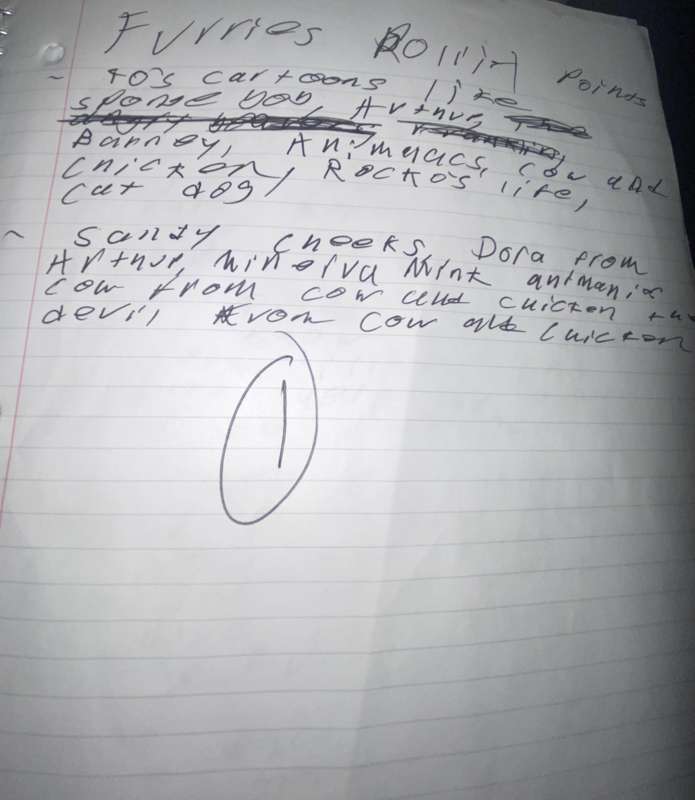 Furries Rollin Points
~ 90's cartoons like
sponge bob, Arthur,
Barney, Animaacs, cow and
Chicken, Rocko's life,
Cat dog,
~ Sandy Cheeks, Dora from
Arthur, Minerva Mink animania
Cow from cow and chicken
devil from cow and Chicken
1